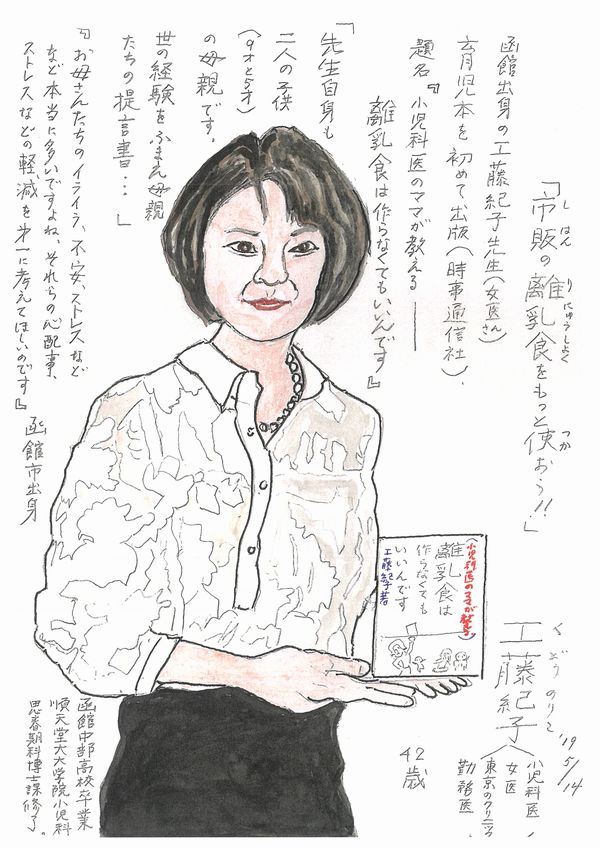 「市販の離乳食をもっと使おう!!」
しはん
りにゅうしょく
つか
函館出身の工藤紀子先生(女医さん)
育児本を初めて出版(時事通信社)、
題名『小児科医のママが教える――
離乳食は作らなくてもいいんです』
「先生自身も
二人の子供
(9才と5才)
の母親です。
世の経験をふまえ母親
たちの提言書…」
『お母さんたちのイライラ、不安、ストレスなど
など本当に多いですよね、それらの心配事、
ストレスなどの軽減を第一に考えてほしいのです』
函館市出身
(小児科医のママが教える)
離乳食は
作らなくても
いいんです
工藤紀子著
工藤紀子
くどうのりこ
'19 5/14
小児科医、
女医
東京のクリニック
勤務医、
42歳
函館中部高校卒業
順天堂大大学院小児科
思春期科博士課修了。